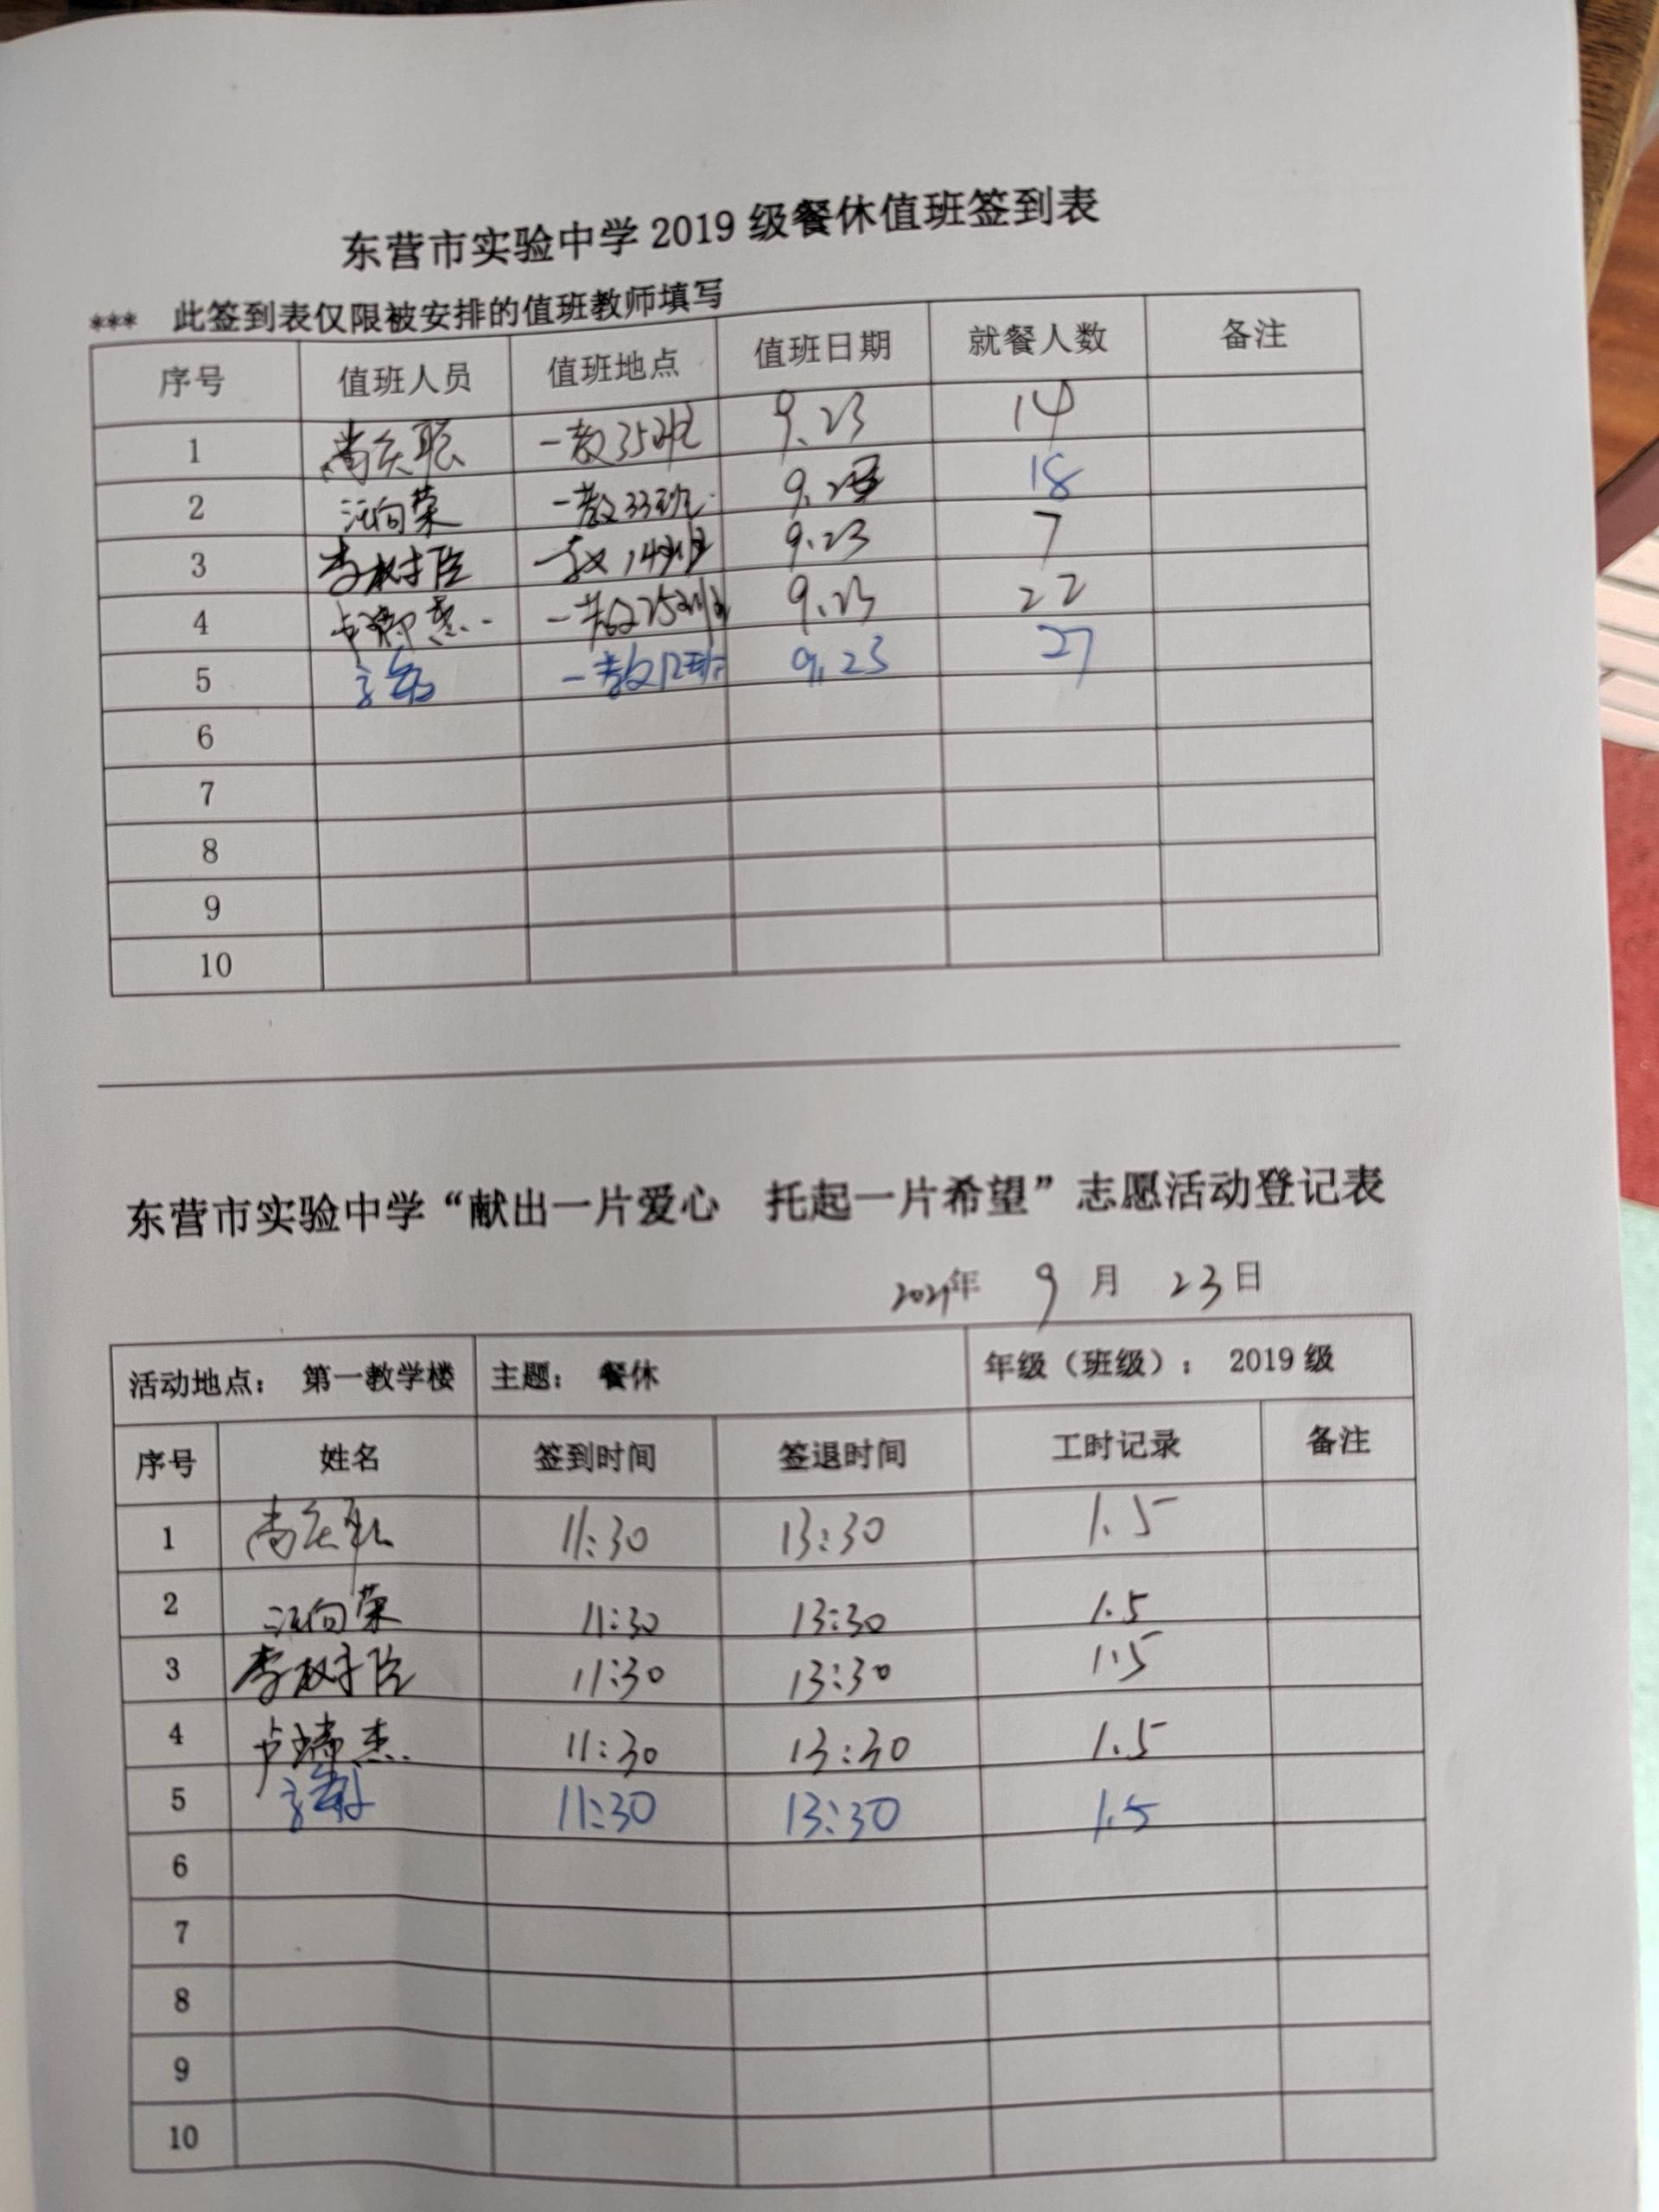 东营市实验中学 2019 级餐休值班签到表
*** 此签到表仅限被安排的值班教师填写
序号 值班人员 值班地点 值班日期 就餐人数 备注
1 尚庆聪 一教35班 9.23 14
2 汪向荣 一教33班 9.23 18
3 李树臣 一教14班 9.23 7
4 卢瑞杰 一教25班 9.23 22
5 一教12班 9.23 27
6
7
8
9
10
东营市实验中学“献出一片爱心 托起一片希望”志愿活动登记表
2021年 9 月 23 日
活动地点： 第一教学楼 主题： 餐休 年级（班级）： 2019 级
序号 姓名 签到时间 签退时间 工时记录 备注
1 尚庆聪 11:30 13:30 1.5
2 汪向荣 11:30 13:30 1.5
3 李树臣 11:30 13:30 1.5
4 卢瑞杰 11:30 13:30 1.5
5 11:30 13:30 1.5
6
7
8
9
10